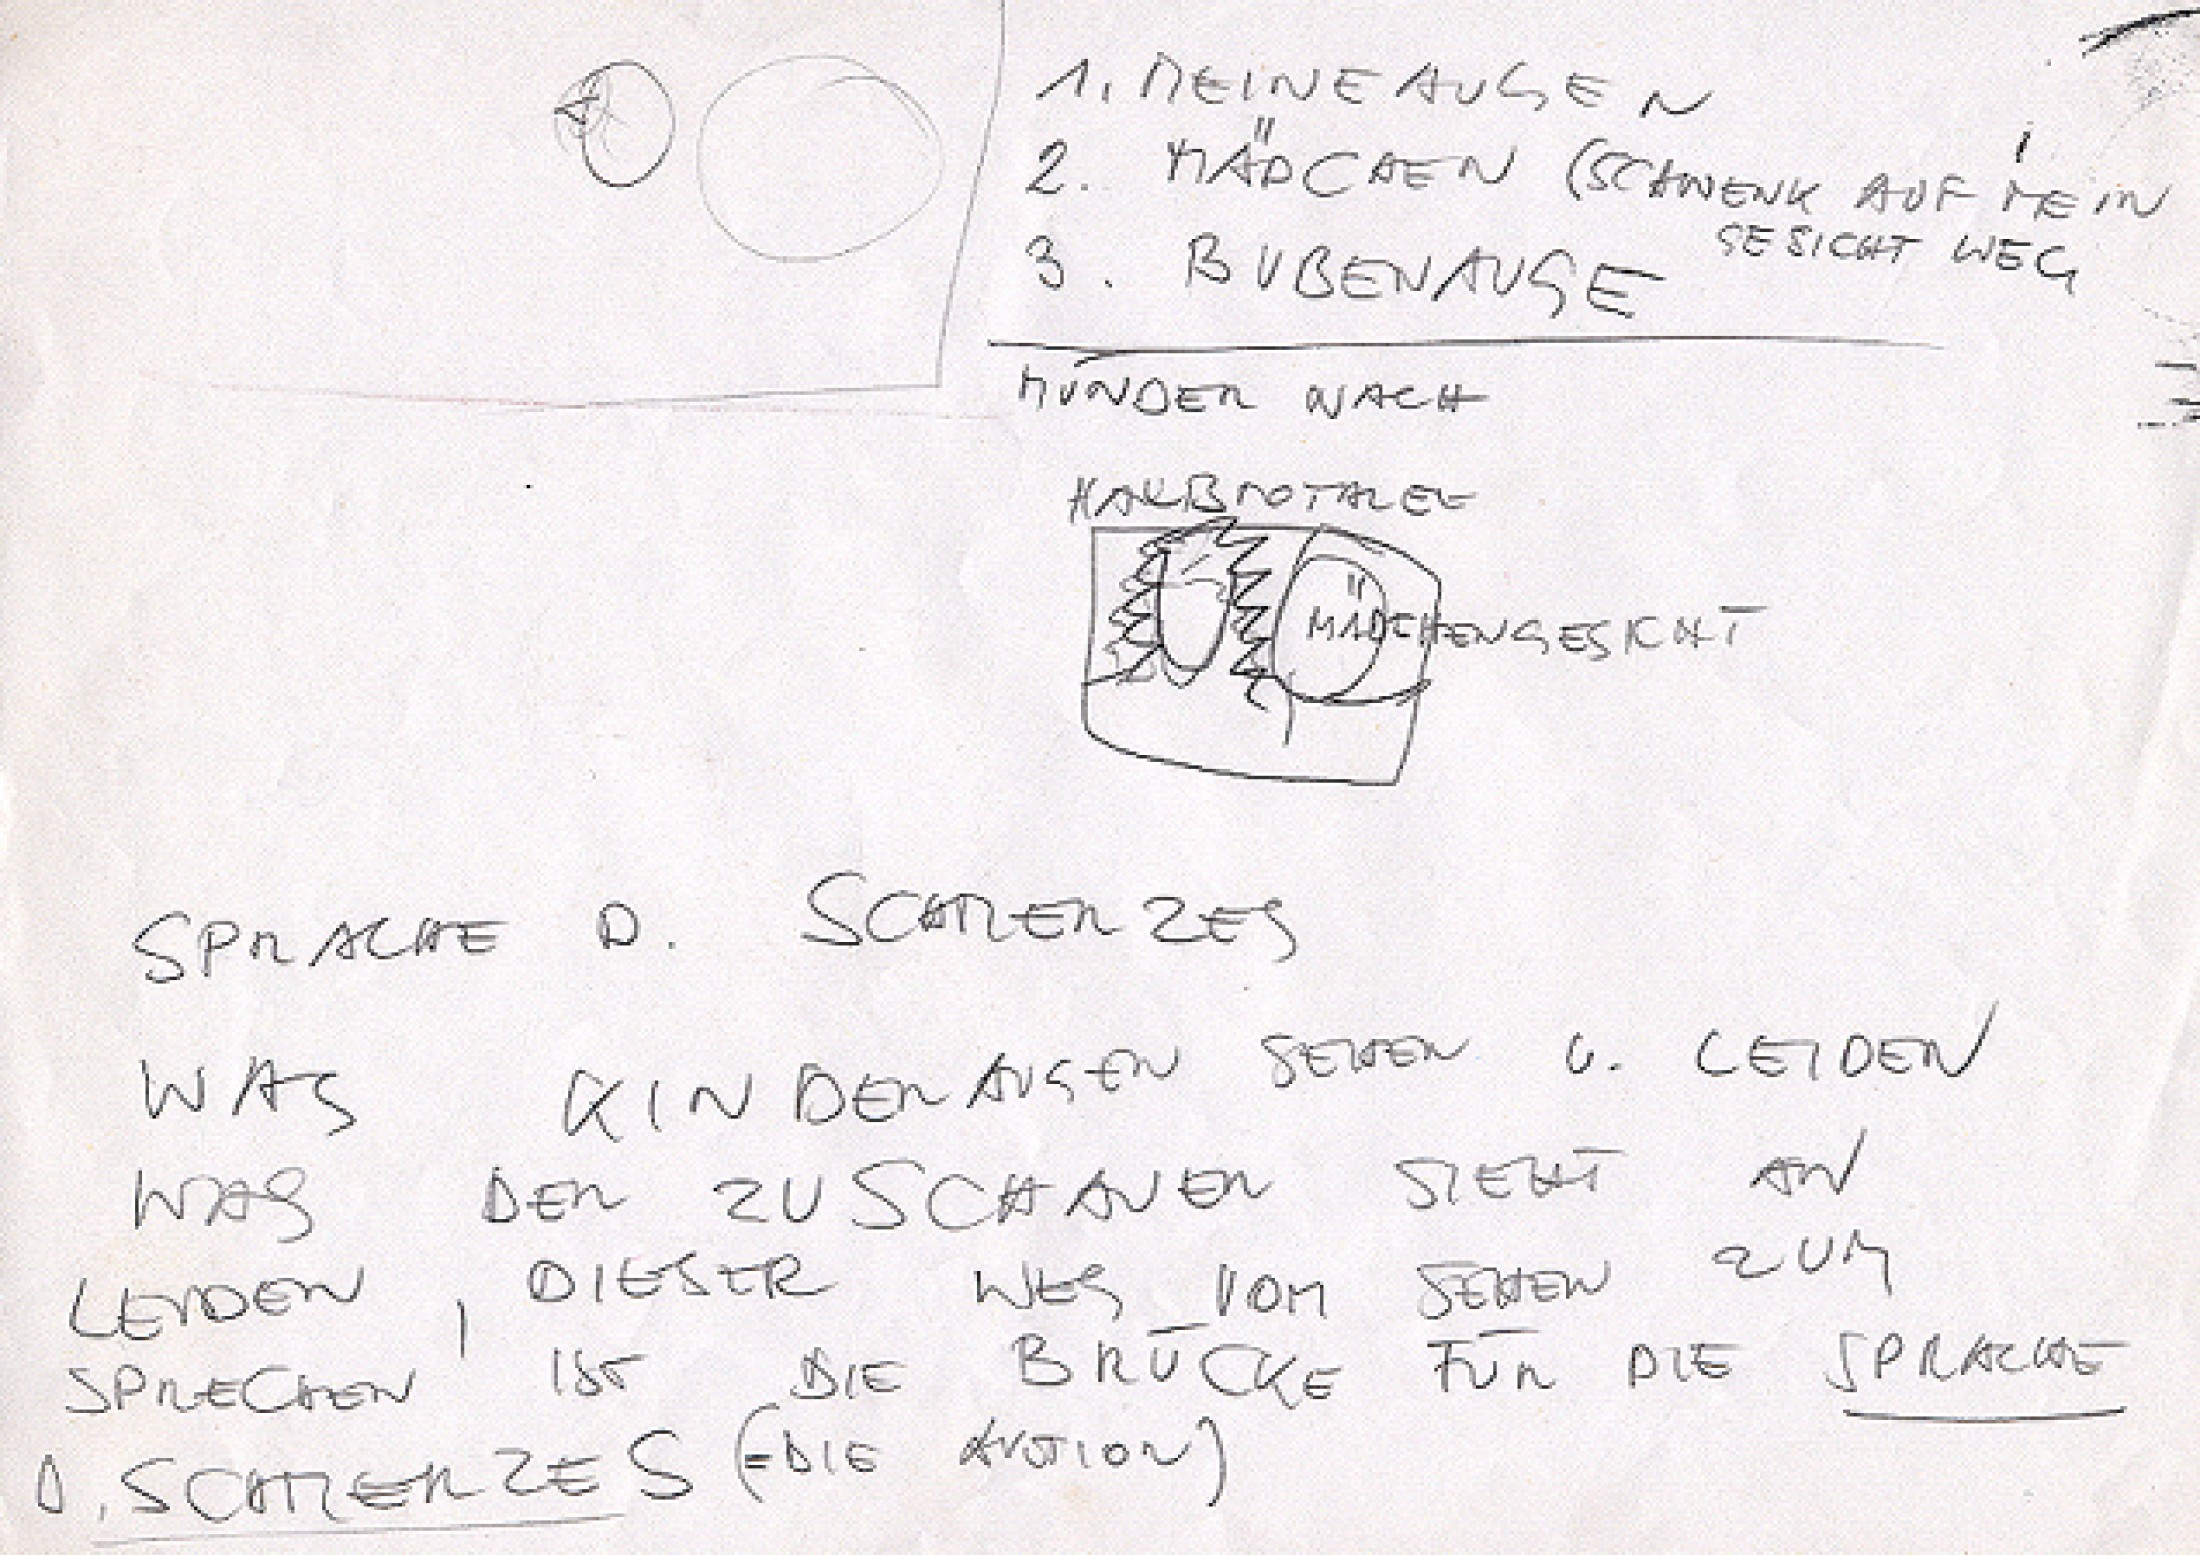 1. MEINE AUGEN
2. MÄDCHEN (SCHWENK AUF MEIN
GESICHT WEG
3. BUBENAUGE
MÜNDER NACH
MÄDCHENGESICHT
SPRACHE D. SCHMERZES
WAS KINDERAUGEN SEHEN U. LEIDEN
WAS DER ZUSCHAUER SIEHT AN
LEIDEN, DIESER WEG VOM SEHEN ZUM
SPRECHEN IST DIE BRÜCKE FÜR DIE SPRACHE
D. SCHMERZES (=DIE AKTION)